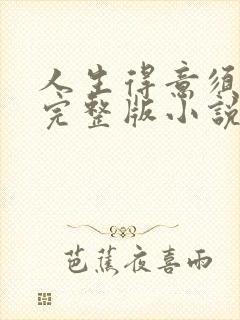 人生得意须
完整版小說
芭蕉夜喜雨